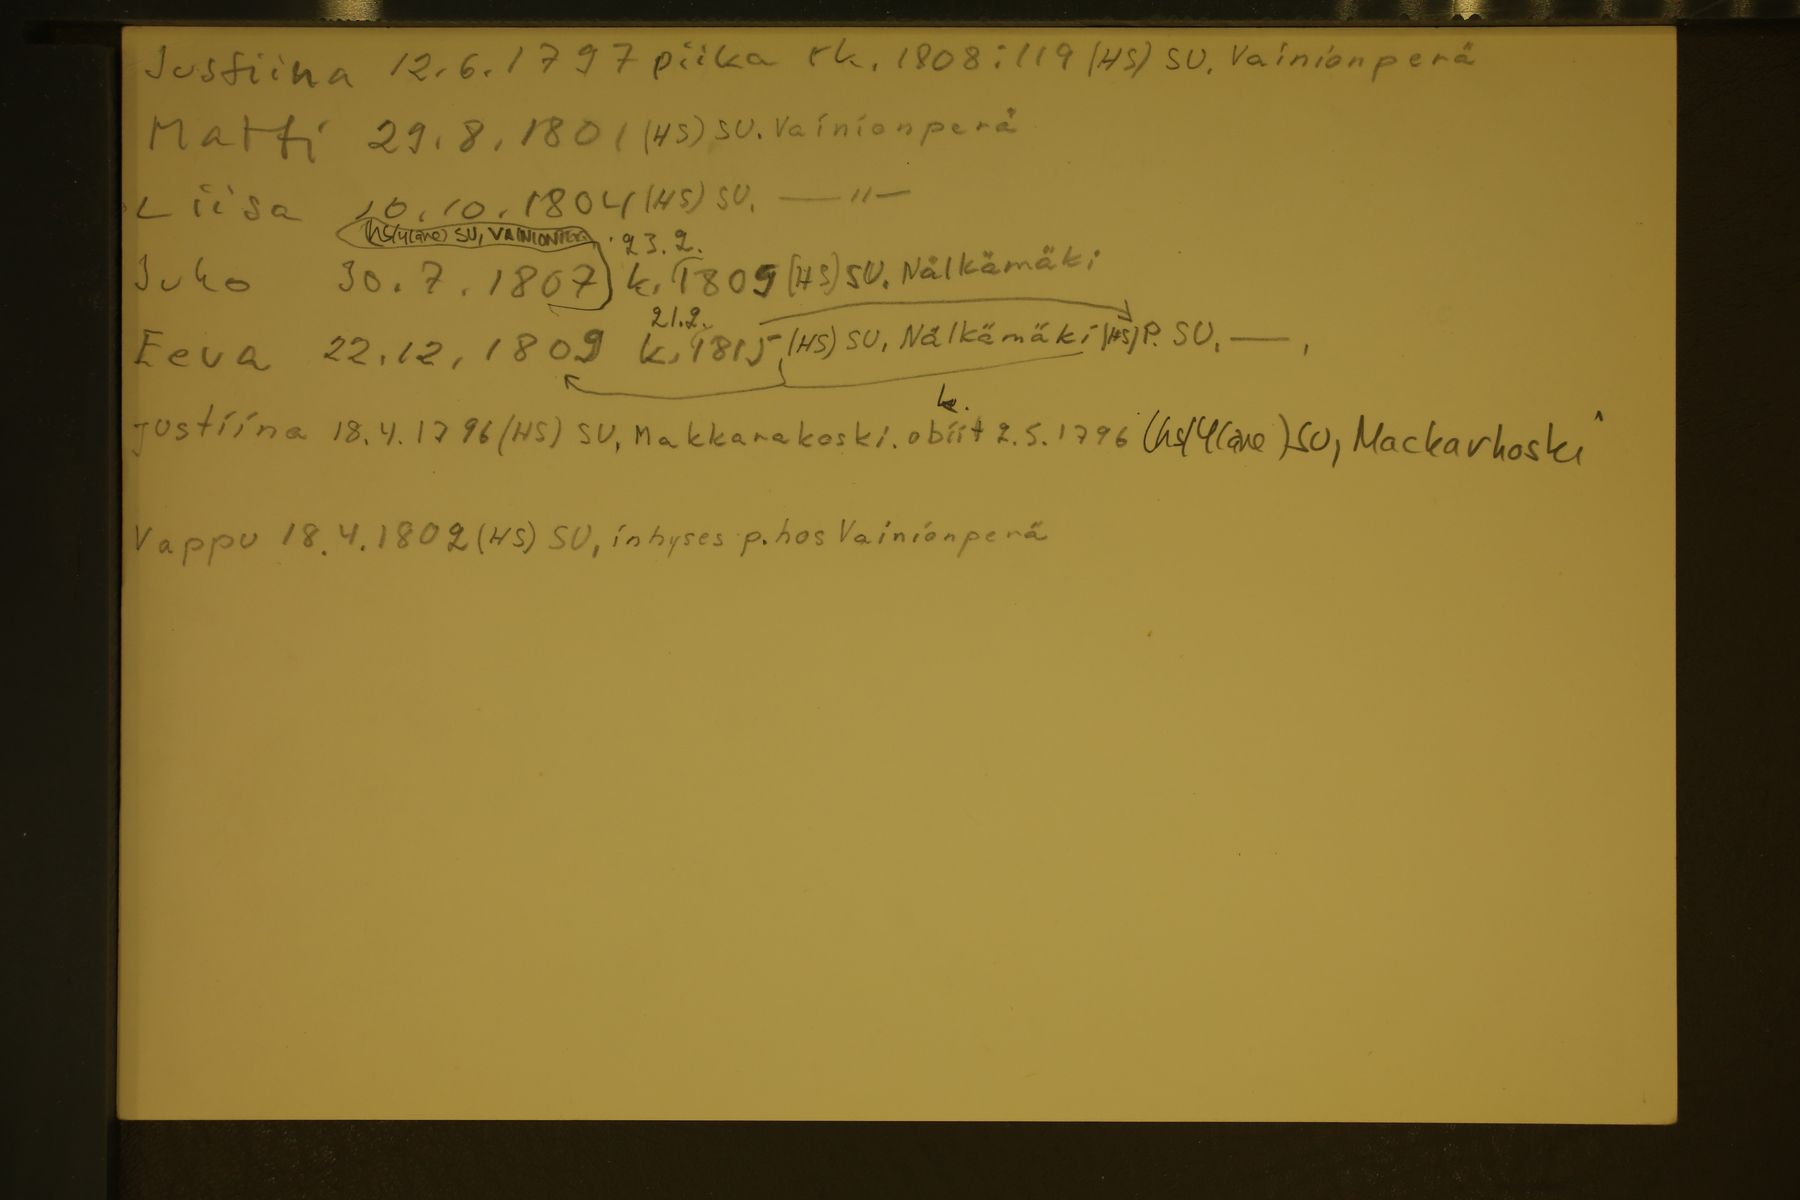 Justiina 12.6.1797 piika rk. 1808:119 (HS) SU. Vainionperä
Matti 29.8.1801 (HS) SU. Vainionperä
Liisa 10.10.1804 (HS) SU. —〃—
(hs/Yläne) SU, VAINIONPER. 23.2.
Juho 30.7.1807 k. 1809 (HS) SU. Nälkämäki
21.2.
Eeva 22.12.1809 k. 1815 (HS) SU, Nälkämäki (HS) P. SU. —,
k.
Justiina 18.4.1796 (HS) SU, Makkarakoski. obiit 2.5.1796 (hs/Yläne) SU, Mackarkoski
Vappu 18.4.1802 (HS) SU, inhyses p. hos Vainionperä